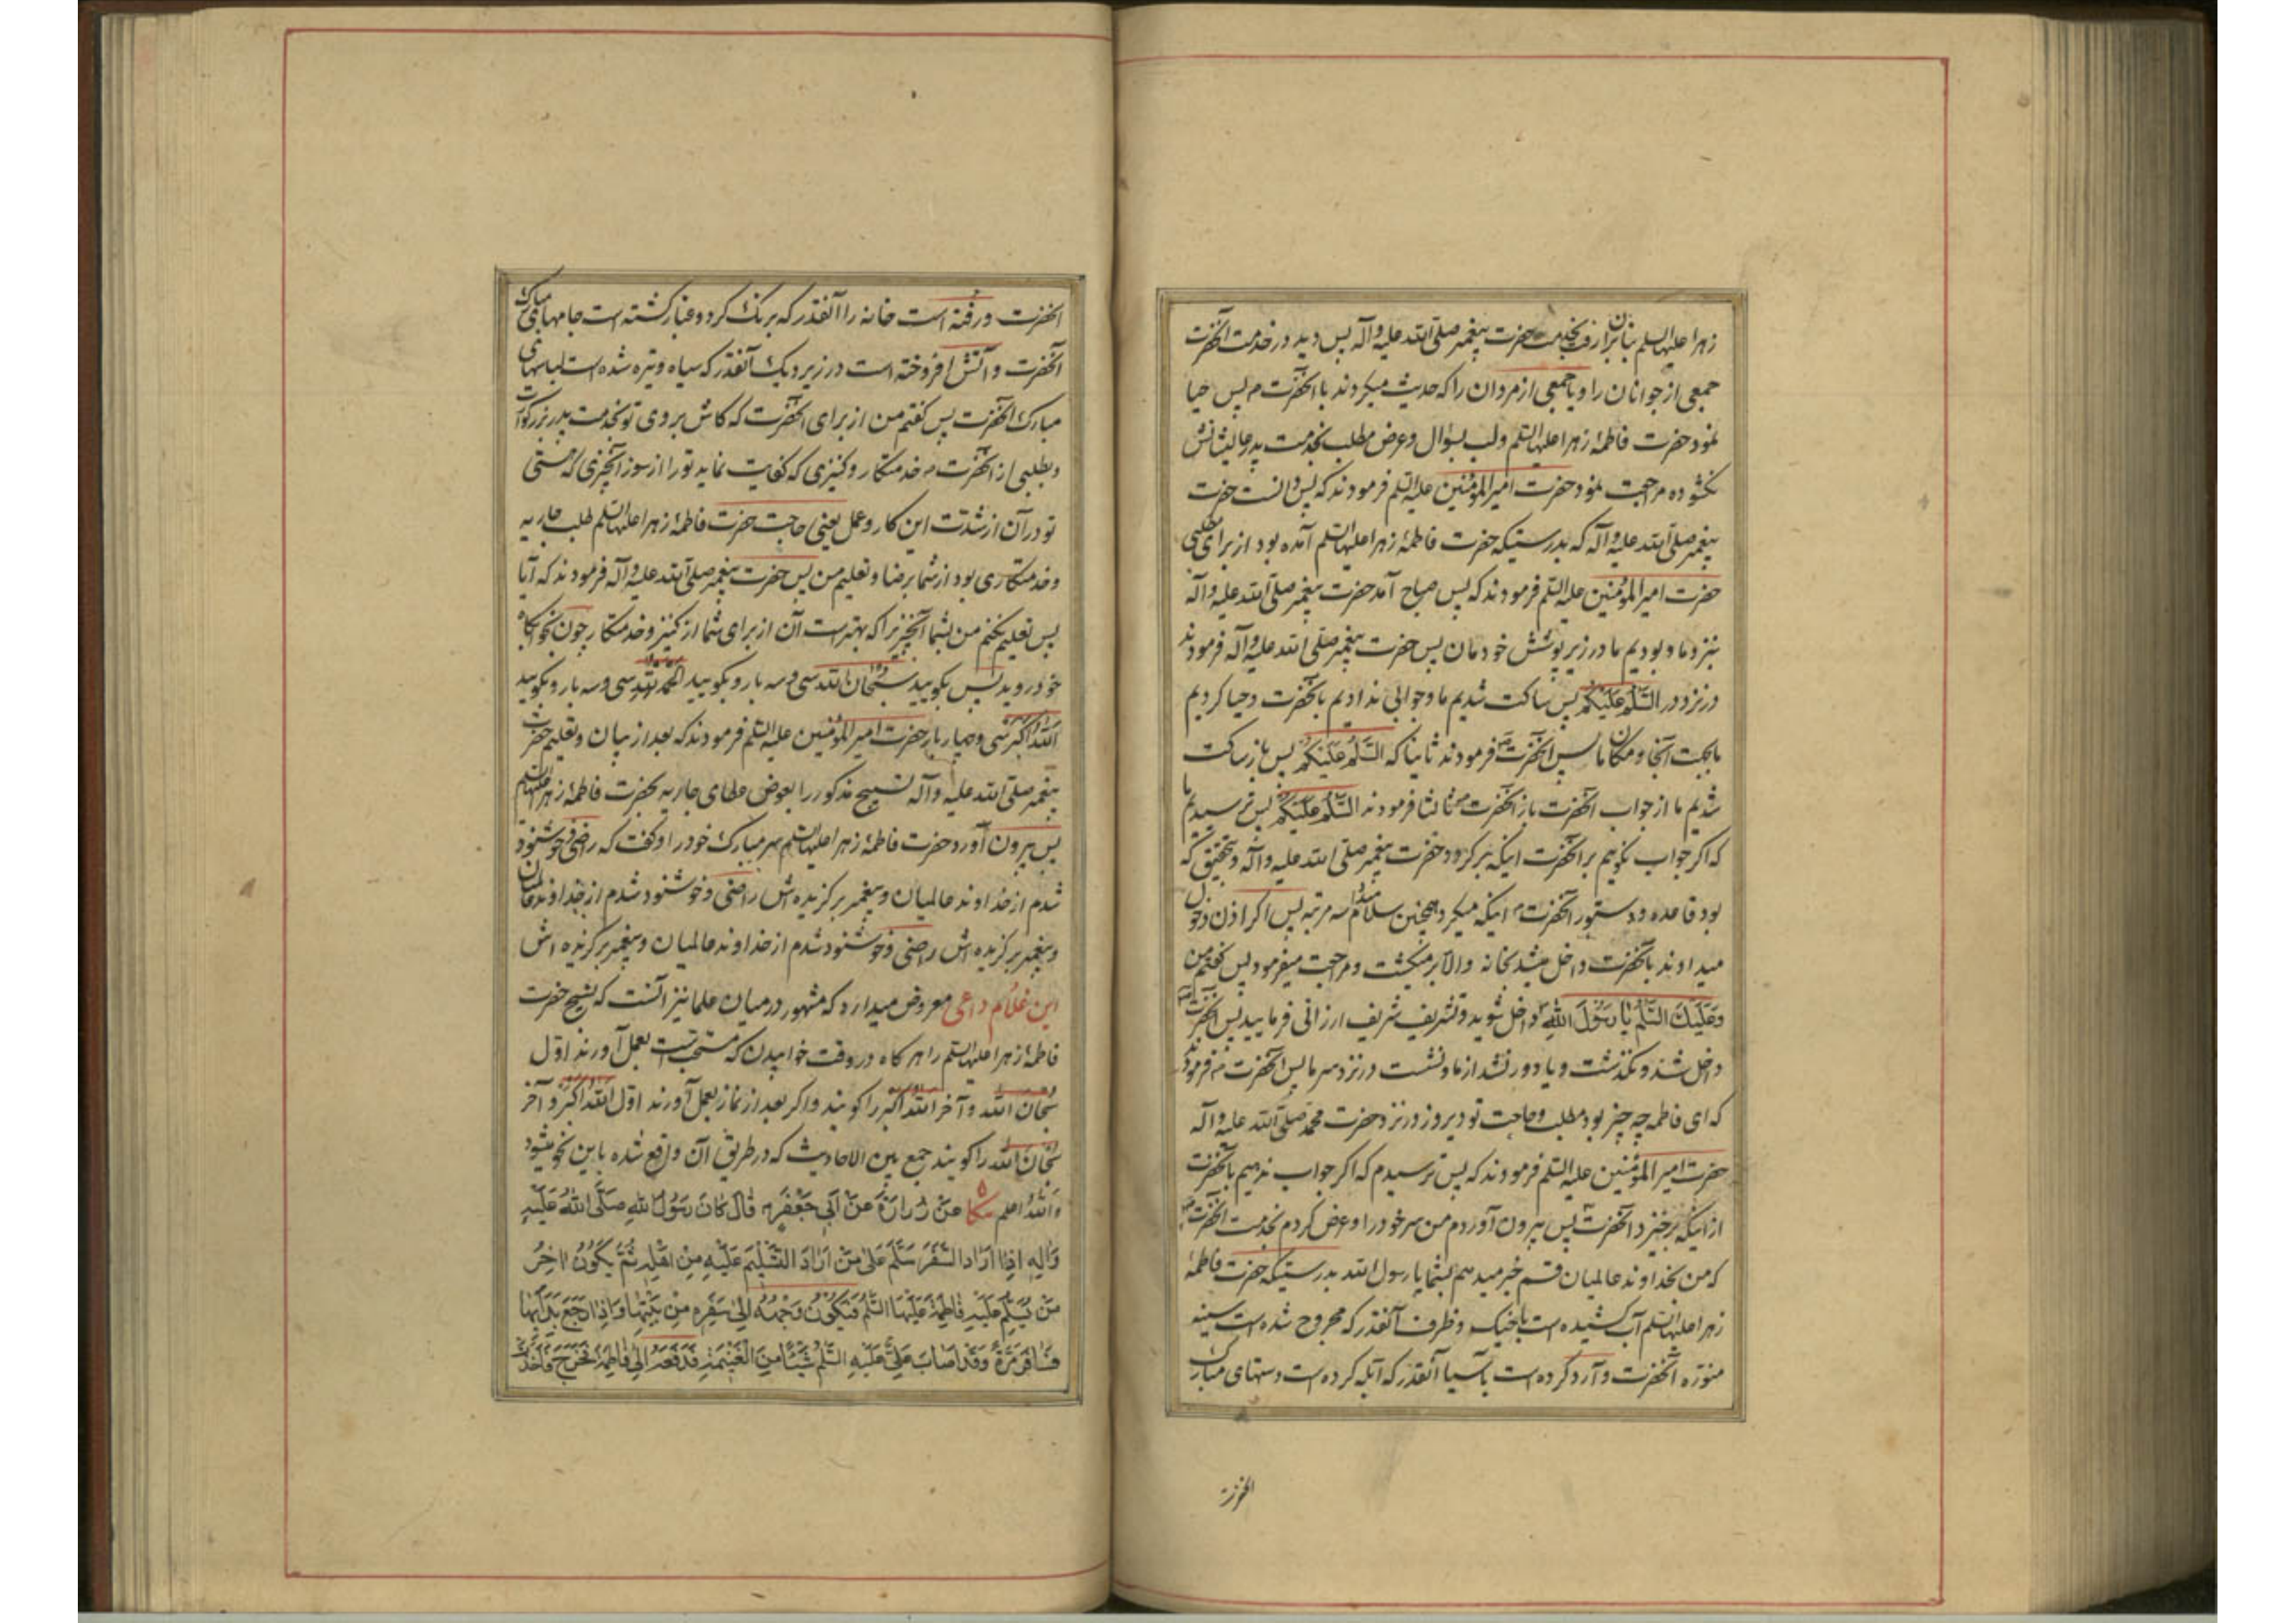 زهرا علیها السلم بنابران از رفت بخدمت حضرت پیغمبر صلی الله علیه وآله پس دید در خدمت آنحضرت
جمعی از جوانان را و یا جمعی از مردان را که حدیث میکردند با آنحضرت پس حیا
نمود حضرت فاطمهٔ زهرا علیها السلم ولب بسؤال وعرض مطلب بخدمت پدر عالیشانش
نکشوده مراجعت نمود حضرت امیرالمؤمنین علیه السلم فرمودند که پس دانست حضرت
پیغمبر صلی الله علیه وآله که بدرستیکه حضرت فاطمهٔ زهرا علیها السلم آمده بود از برای مطلبی
حضرت امیرالمؤمنین علیه السلم فرمودند که پس صباح آمد حضرت پیغمبر صلی الله علیه وآله
بنزد ما و بودیم ما در زیر پوشش خودمان پس حضرت پیغمبر صلی الله علیه وآله فرمودند
در نزد در السَّلَمُ عَلَیْکُمْ پس ساکت شدیم ما وجوابی ندادیم بآنحضرت وحیا کردیم
ما بجهت آنجا و مکان ما پس آنحضرت فرمودند ثانیا که السَّلَمُ عَلَیْکُمْ پس باز ساکت
شدیم ما از جواب آنحضرت باز آنحضرت ثالثا فرمودند السَّلَمُ عَلَیْکُمْ پس ترسیدیم ما
که اکر جواب نکویم بر آنحضرت اینکه برکردد حضرت پیغمبر صلی الله علیه وآله وتحقیق که
بود قاعده ودستور آنحضرت اینکه میکرد همچنین سلام سه مرتبه پس اکر اذن دخول
میدادند بآنحضرت داخل میشد بخانه والا برمیکشت ومراجعت میفرمود پس کفتم من
وَعَلَیْکَ السَّلَمُ یا رَسُولَ اللّهِ داخل شوید وتشریف شریف ارزانی فرمایید پس آنحضرت
داخل شد ونکذشت ویا دور نشد از ما ونشست در نزد سر ما پس آنحضرت فرمودند
که ای فاطمه چه چیز بود مطلب وحاجت تو دیروز در نزد حضرت محمد صلی الله علیه وآله
حضرت امیرالمؤمنین علیه السلم فرمودند که پس ترسیدم که اکر جواب ندهیم بآنحضرت
از اینکه برخیزد آنحضرت پس بیرون آوردم من سر خود را وعرض کردم بخدمت آنحضرت
که من بخداوند عالمیان قسم خبر میدهم بشما یا رسول الله بدرستیکه حضرت فاطمهٔ
زهرا علیها السلم آب کشیده است با خیک وظرف آنقدر که مجروح شده است سینهٔ
منوره آنحضرت وآرد کرده است بآسیا آنقدر که آبله کرده است دستهای مبارک
آنحضرت
آنحضرت ورفته است خانه را آنقدر که برنک کرد وغبار کشته است جامهای مبارک
آنحضرت وآتش افروخته است در زیر دیک آنقدر که سیاه وتیره شده است لباسهای
مبارک آنحضرت پس کفتم من از برای آنحضرت که کاش بروی تو بخدمت پدر بزرکوارت
وبطلبی از آنحضرت خدمتکار وکنیزی که کفایت نماید تو را از سوز آنچیزی که هستی
تو در آن از شدت این کار وعمل یعنی حاجت حضرت فاطمهٔ زهرا علیها السلم طلب جاریه
وخدمتکاری بود از شما برضا وتعلیم من پس حضرت پیغمبر صلی الله علیه وآله فرمودند که آیا
پس تعلیم نکنم من بشما آنچیزیرا که بهتر است آن از برای شما از کنیز وخدمتکار چون بخوابکاه
خود روید پس بکویید سُبْحانَ اللّه سی وسه بار وبکویید الحمد لله سی وسه بار وبکویید
اللّهُ اَکْبَر سی وچهار بار حضرت امیرالمؤمنین علیه السلم فرمودند که بعد از بیان وتعلیم حضرت
پیغمبر صلی الله علیه وآله تسبیح مذکور را بعوض عطای جاریه بحضرت فاطمهٔ زهرا علیها السلم
پس بیرون آورد حضرت فاطمهٔ زهرا علیها السلم سر مبارک خود را وکفت که راضی وخوشنود
شدم از خداوند عالمیان وپیغمبر برکزیده اش راضی وخوشنود شدم از خداوند عالمیان
وپیغمبر برکزیده اش راضی وخوشنود شدم از خداوند عالمیان وپیغمبر برکزیده اش
این غلام داعی معروض میدارد که مشهور در میان علما نیز آنست که تسبیح حضرت
فاطمهٔ زهرا علیها السلم را هر کاه در وقت خوابیدن که مستحب است بعمل آورند اول
سُبْحانَ اللّه وآخر اَللّهُ اَکْبَر را کویند واکر بعد از نماز بعمل آورند اول اَللّهُ اَکْبَر وآخر
سُبْحانَ اللّه را کویند جمع بین الاحادیث که در طریق آن واقع شده باین نحو میشود
وَاللّهُ اعلم عَنْ زُرارَةَ عَنْ اَبی جَعْفَرٍ قالَ کانَ رَسُولُ اللّهِ صَلَّی اللّهُ عَلَیْهِ
وَآلِهِ اِذا اَرادَ السَّفَرَ سَلَّمَ عَلی مَنْ اَرادَ التَّسْلیمَ عَلَیْهِ مِنْ اَهْلِهِ ثُمَّ یَکُونُ آخِرُ
مَنْ یُسَلِّمُ عَلَیْهِ فاطِمَةَ عَلَیْهَا السَّلَمُ فَیَکُونُ وَجْهُهُ اِلی سَفَرِهِ مِنْ بَیْتِها وَاِذا رَجَعَ بَدَأَ بِها
فَسافَرَ مَرَّةً وَقَدْ اَصابَ عَلِیٌّ عَلَیْهِ السَّلَمُ شَیْئًا مِنَ الْغَنیمَةِ فَدَفَعَهُ اِلی فاطِمَةَ فَخَرَجَ فَاَخَذَتْ